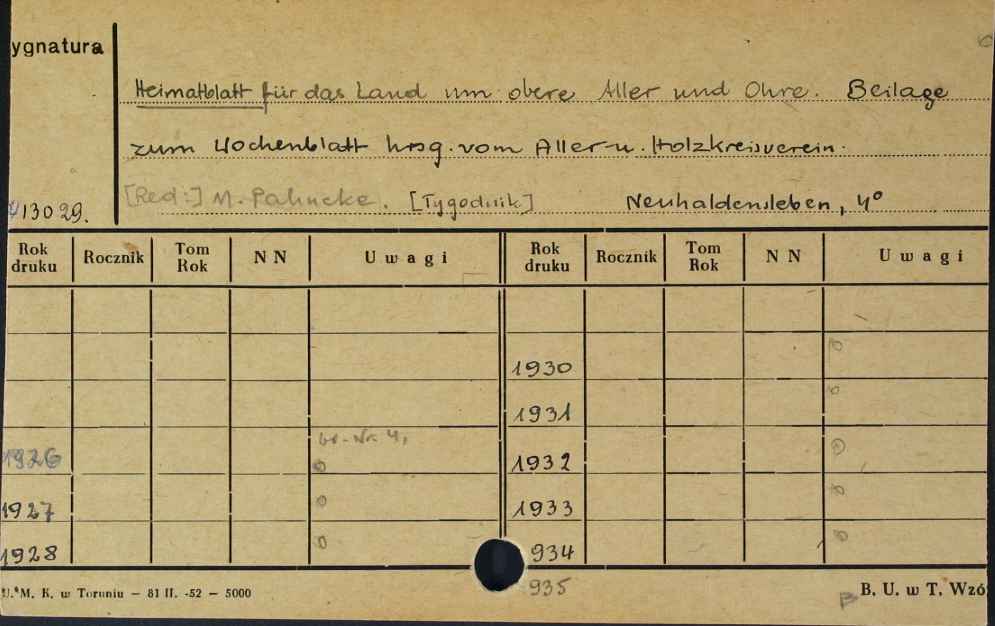 ygnatura
Heimatblatt für das Land um obere Aller und Ohre. Beilage
zum Wochenblatt hrsg. vom Aller- u. Holzkreisverein.
13029. [Red:] M. Pahncke. [Tygodnik] Neuhaldensleben, 4°
Rok druku Rocznik Tom Rok N N Uwagi Rok druku Rocznik Tom Rok N N Uwagi
1930 0
1931 0
1926 br. Nr. 4, 0 1932 0
1927 0 1933 0
1928 0 934 0
935
U. M. K. w Toruniu — 81 II. -52 — 5000 B. U. w T. Wzó